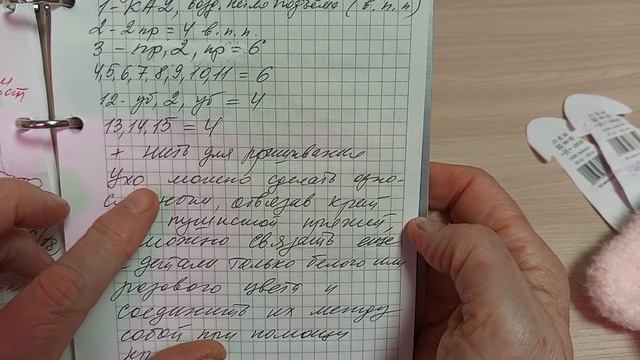 1 - КА2, возд. петля подъёма (в. п. п)
2 - 2 пр = 4 в. п. п.
3 - пр, 2, пр = 6
4,5,6,7,8,9,10,11 = 6
12 - уб, 2, уб = 4
13,14,15 = 4
+ нить для пришивания
Ухо можно сделать одно-
обвязав край
пушистой пряжей,
можно связать ещё
детали только белого или
розового цвета и
соединить их между
собой при помощи
кр